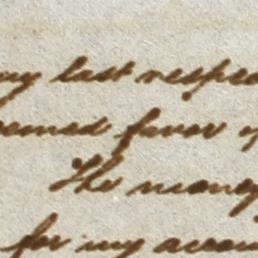 my last respec
eemed favor of
The money
for my accoun